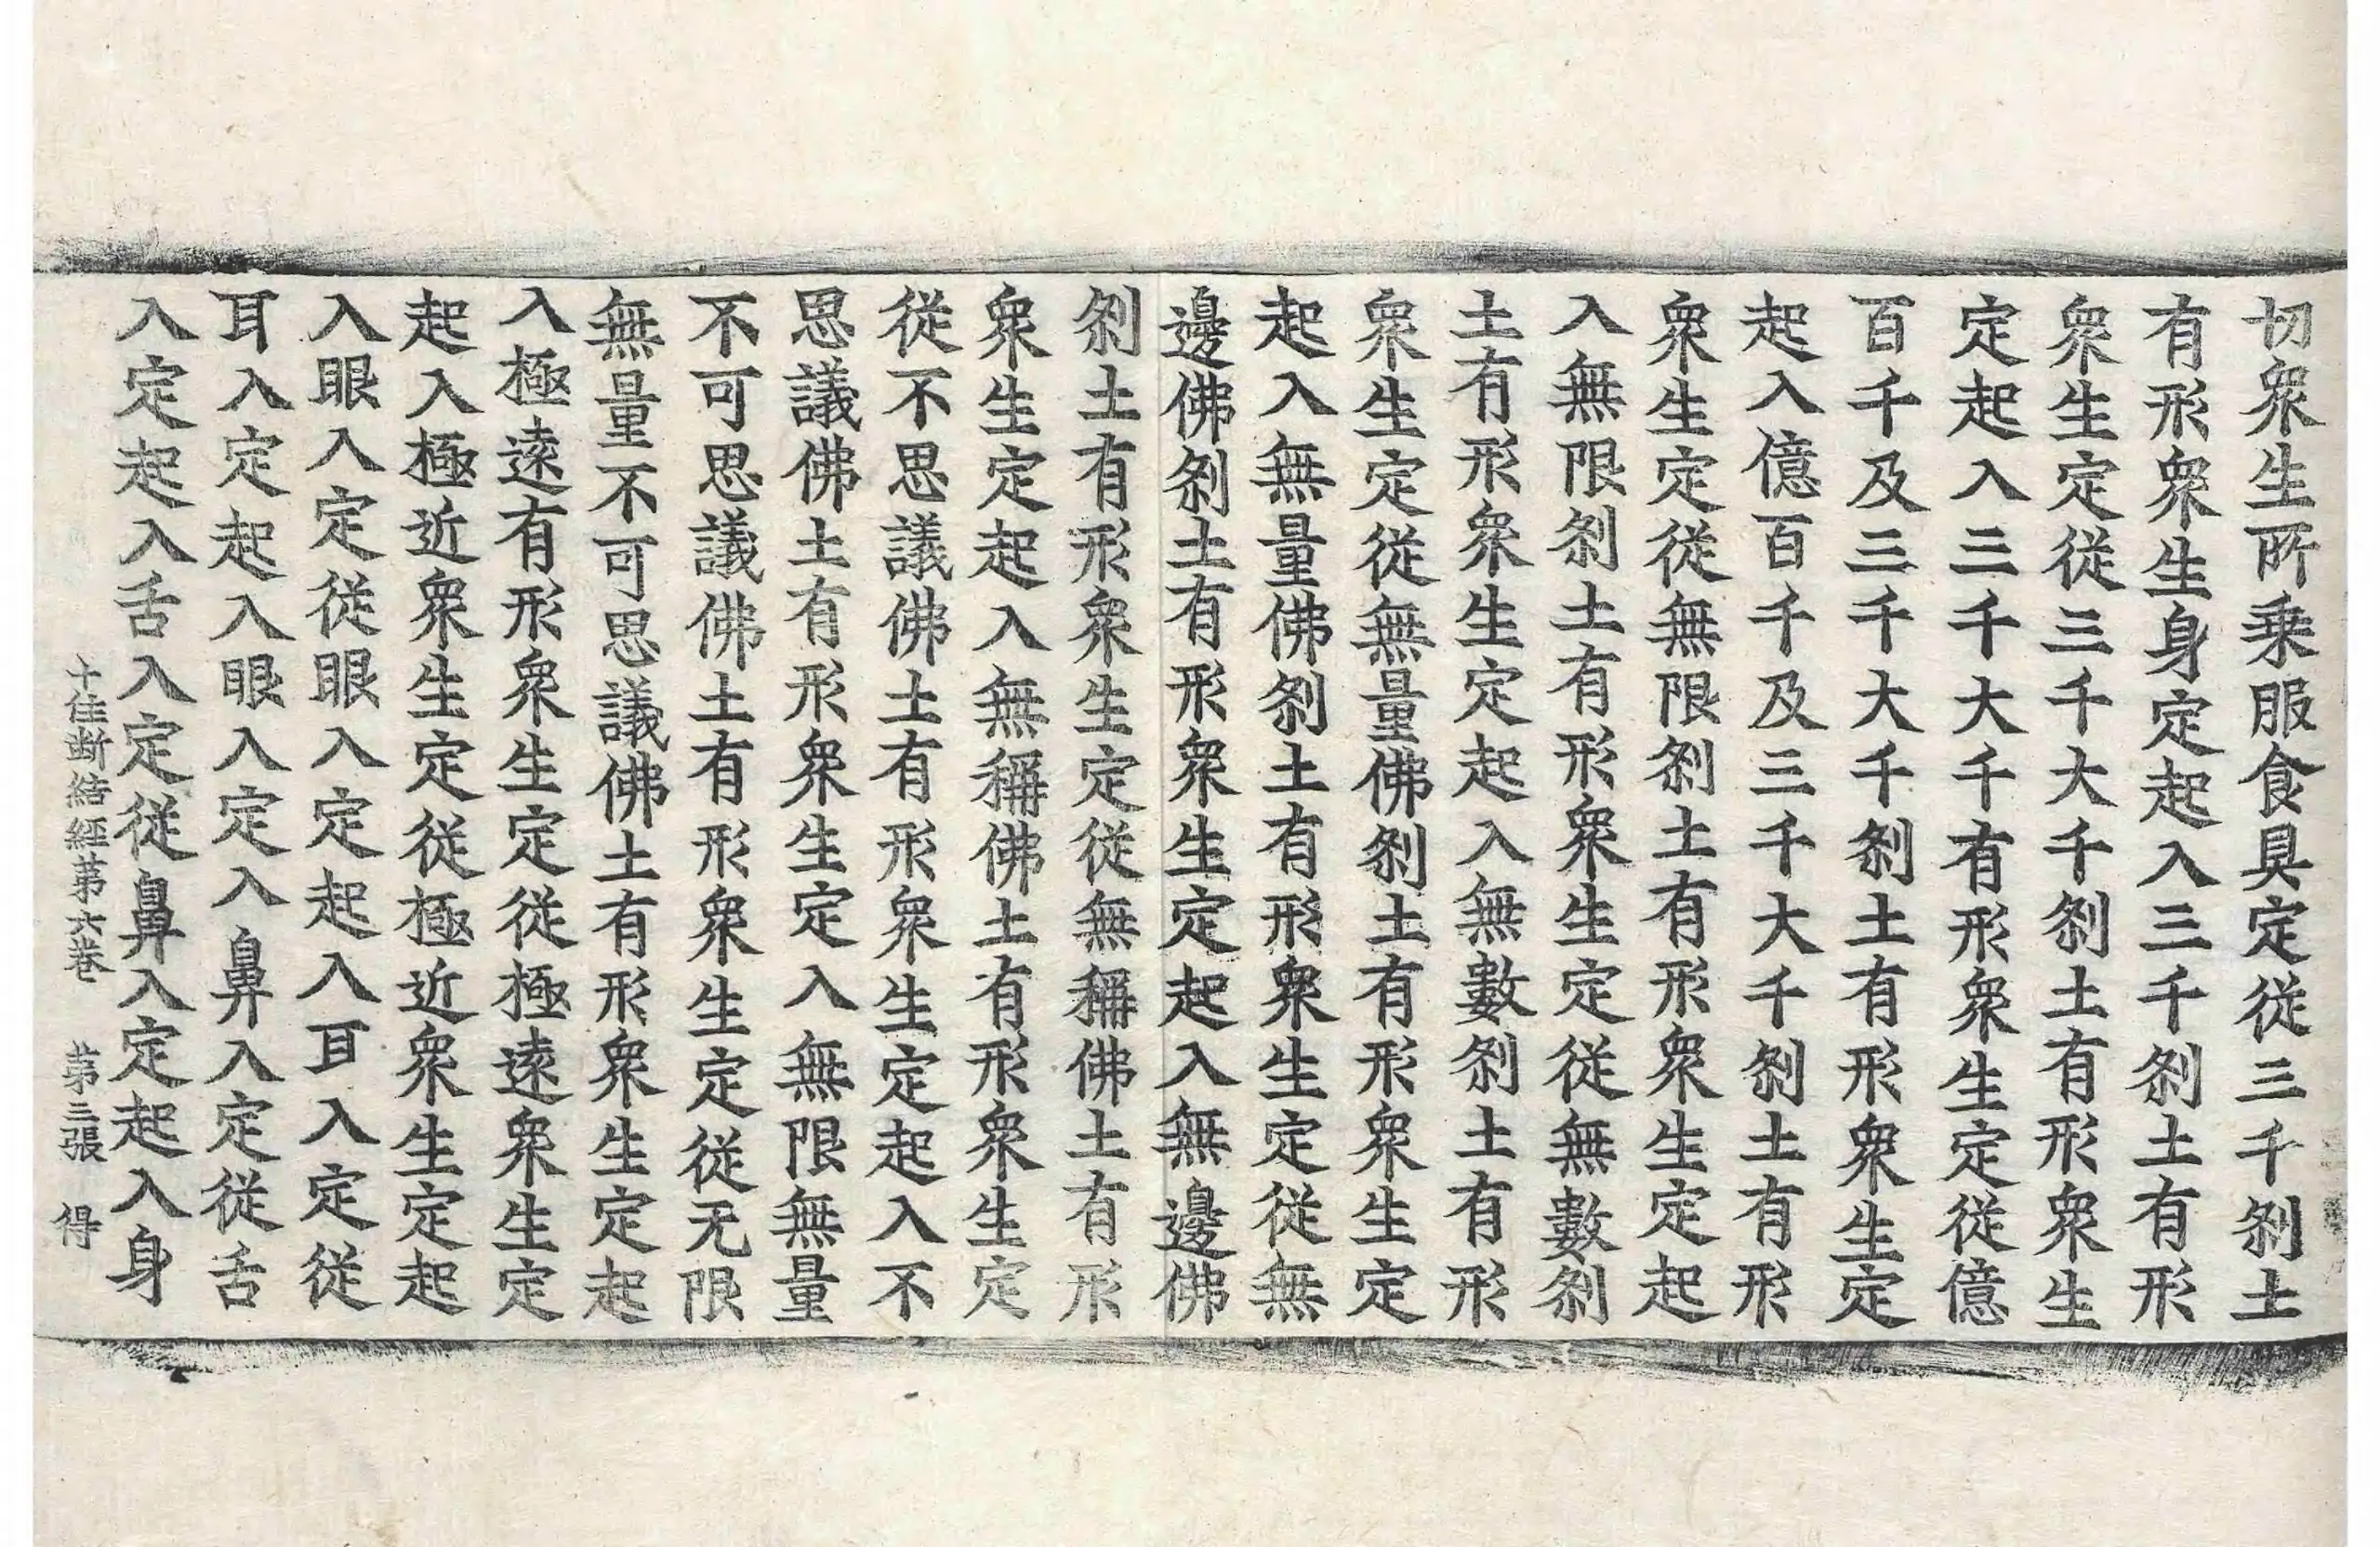 切衆生所乗服食具定從三千刹土
有形衆生身定起入三千刹土有形
衆生定從三千大千刹土有形衆生
定起入三千大千有形衆生定從億
百千及三千大千刹土有形衆生定
起入億百千及三千大千刹土有形
衆生定從無限刹土有形衆生定起
入無限刹土有形衆生定從無數刹
土有形衆生定起入無數刹土有形
衆生定從無量佛刹土有形衆生定
起入無量佛刹土有形衆生定從無
邊佛刹土有形衆生定起入無邊佛
刹土有形衆生定從無稱佛土有形
衆生定起入無稱佛土有形衆生定
從不思議佛土有形衆生定起入不
思議佛土有形衆生定入無限無量
不可思議佛土有形衆生定從无限
無量不可思議佛土有形衆生定起
入極遠有形衆生定從極遠衆生定
起入極近衆生定從極近衆生定起
入眼入定從眼入定起入耳入定從
耳入定起入眼入定入鼻入定從舌
入定起入舌入定從鼻入定起入身
十住斷結經第六卷 第三張 得